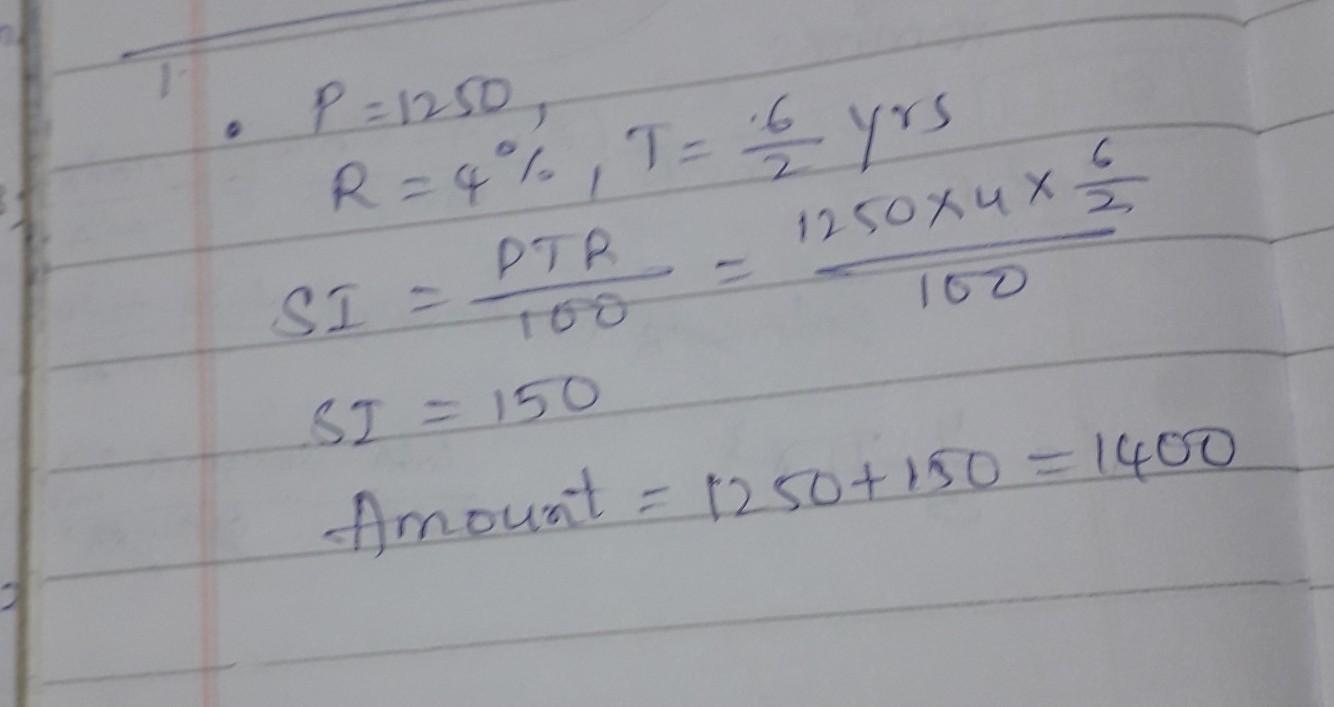 P = 1250,
R = 4%, T = 6/2 yrs
SI = PTR/100 = 1250×4×6/2/100
SI = 150
Amount = 1250+150 = 1400